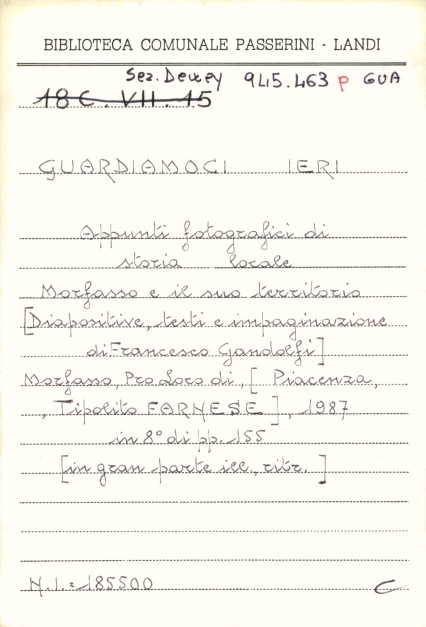 BIBLIOTECA COMUNALE PASSERINI - LANDI
Sez. Dewey 945.463 p GUA
18 C. VII. 15
GUARDIAMOCI IERI
Appunti fotografici di
storia locale
Morfasso e il suo territorio
[Diapositive, testi e impaginazione
di Francesco Gandolfi]
Morfasso, Pro Loco di, [ Piacenza,
, Tipolito FARNESE ], 1987
in 8° di pp. 155
[in gran parte ill., ritr. ]
N.I.= 185500 C